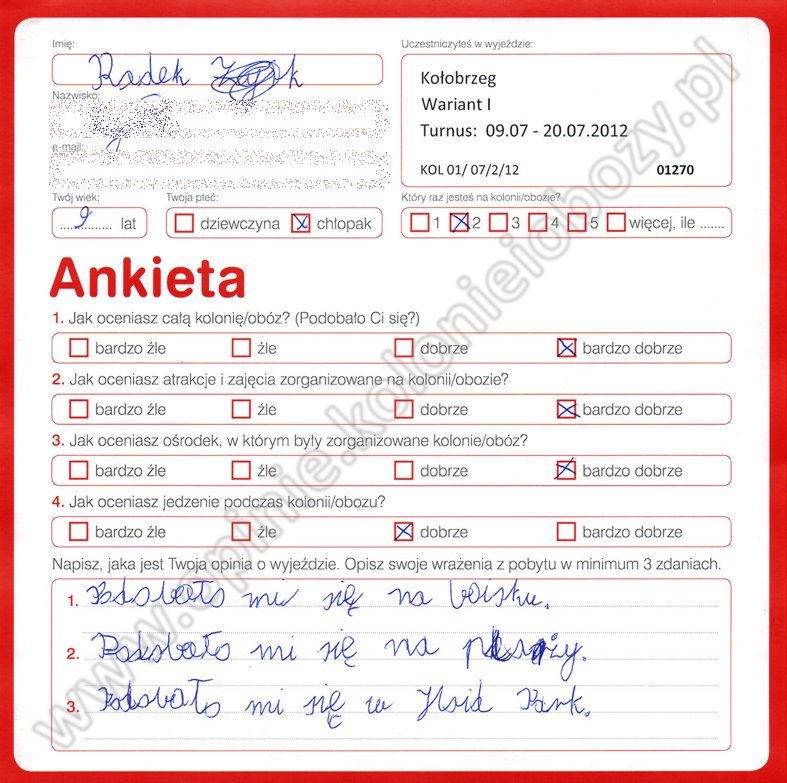 Imię:
Uczestniczyłeś w wyjeździe:
Radek
Kołobrzeg
Wariant I
Turnus: 09.07 - 20.07.2012
KOL 01/ 07/2/12 01270
Nazwisko:
e-mail:
Twój wiek:
Twoja płeć:
Który raz jesteś na kolonii/obozie?
9 lat
dziewczyna x chłopak
1 x 2 3 4 5 więcej, ile .......
Ankieta
1. Jak oceniasz całą kolonię/obóz? (Podobało Ci się?)
bardzo źle źle dobrze x bardzo dobrze
2. Jak oceniasz atrakcje i zajęcia zorganizowane na kolonii/obozie?
bardzo źle źle dobrze x bardzo dobrze
3. Jak oceniasz ośrodek, w którym były zorganizowane kolonie/obóz?
bardzo źle źle dobrze x bardzo dobrze
4. Jak oceniasz jedzenie podczas kolonii/obozu?
bardzo źle źle x dobrze bardzo dobrze
Napisz, jaka jest Twoja opinia o wyjeździe. Opisz swoje wrażenia z pobytu w minimum 3 zdaniach.
1. Podobało mi się na boisku.
2. Podobało mi się na plaży.
3. Podobało mi się w Hsid Park.
www.opinie.kolonieiobozy.pl